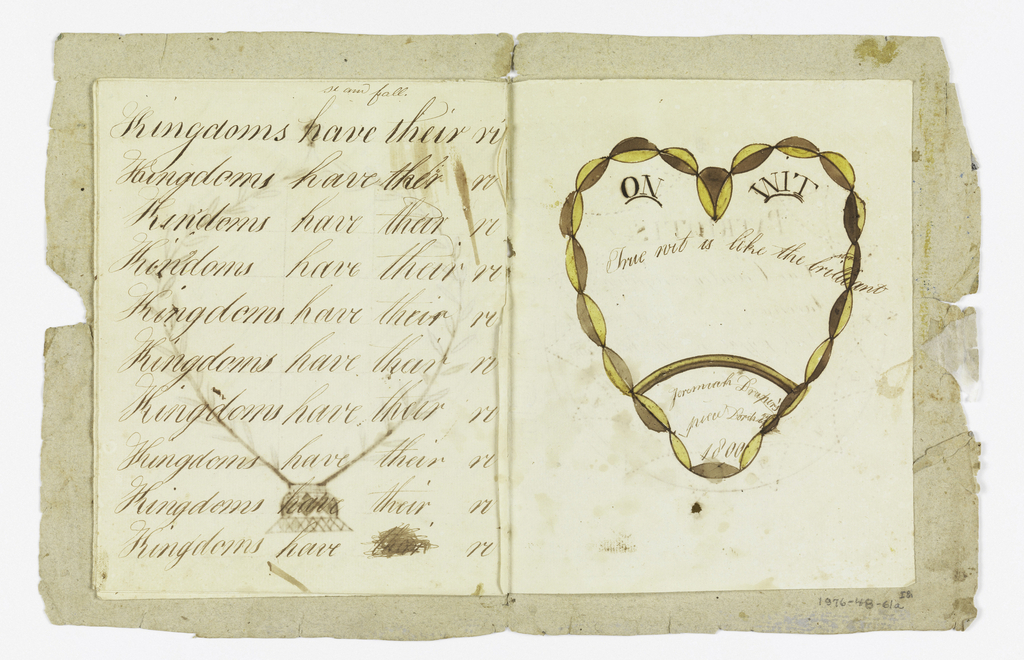 se and fall.
Kingdoms have their ri
Kingdoms have their ri
Kindoms have their ri
Kindoms have their ri
Kingdoms have their ri
Kingdoms have their ri
Kingdoms have their ri
Kingdoms have their ri
Kingdoms have their ri
Kingdoms have their ri
ON WIT
True wit is like the brilliant
Jeremiah Draper's
piece
1800
1976-48-6/a